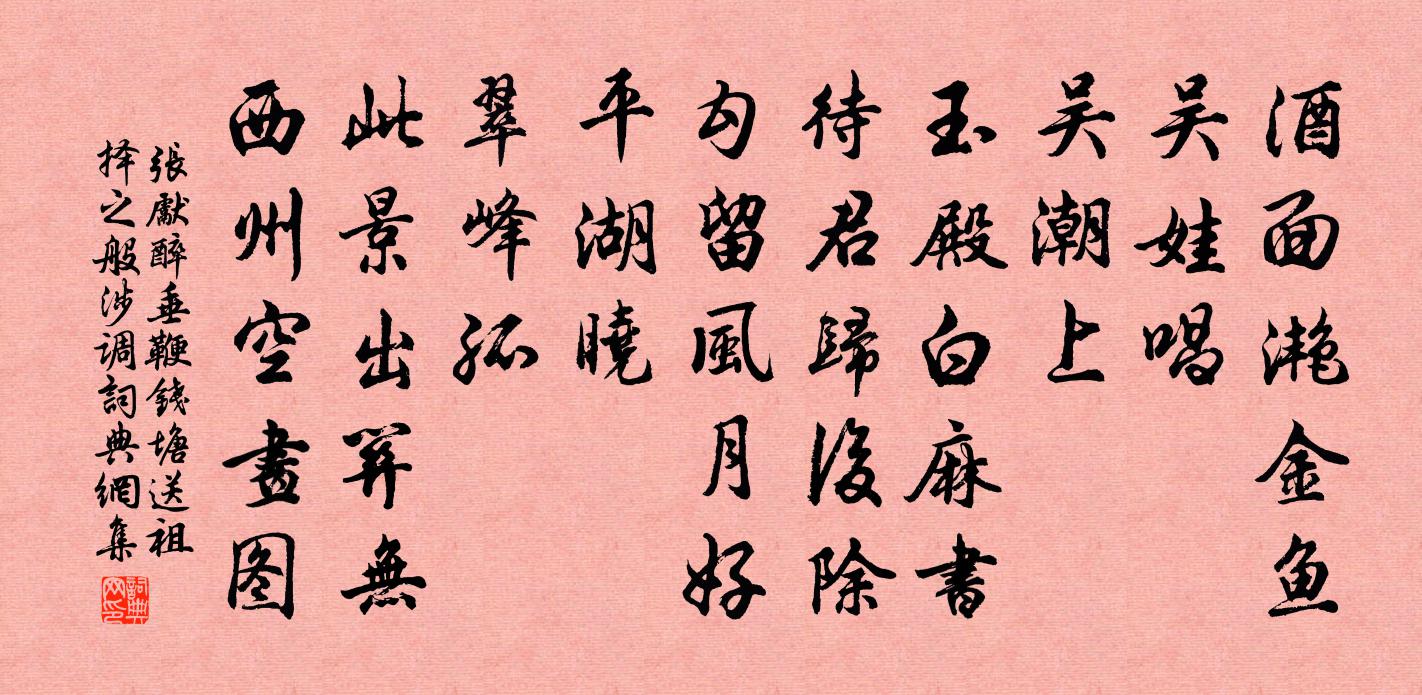 酒面滟金鱼
吴娃唱
吴潮上
玉殿白麻書
待君歸後除
勾留風月好
平湖曉
翠峰孤
此景出關無
西州空畫图
張獻醉垂鞭錢塘送祖
择之般涉调詞典網集
詞典网印